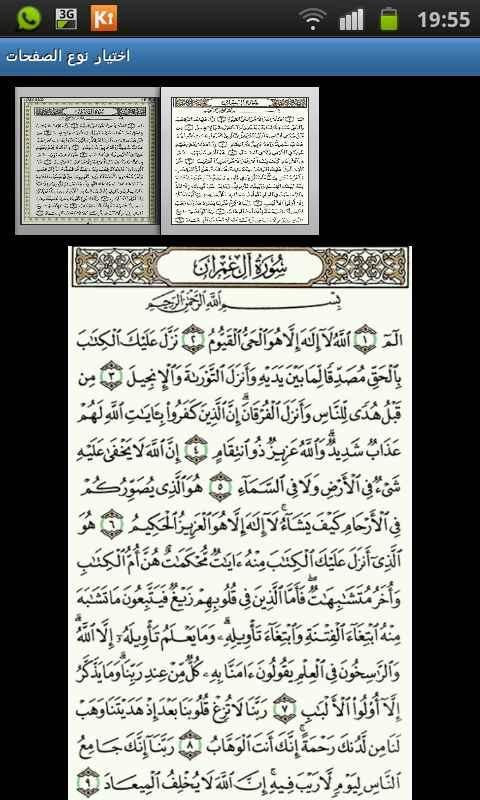 3G
K↑
19:55
اختيار نوع الصفحات
سُورَةُ آلِ عِمْرَان
بِسْمِ اللَّهِ الرَّحْمَٰنِ الرَّحِيمِ
الٓمٓ ١ ٱللَّهُ لَآ إِلَٰهَ إِلَّا هُوَ ٱلْحَىُّ ٱلْقَيُّومُ ٢ نَزَّلَ عَلَيْكَ ٱلْكِتَٰبَ
بِٱلْحَقِّ مُصَدِّقًا لِّمَا بَيْنَ يَدَيْهِ وَأَنزَلَ ٱلتَّوْرَىٰةَ وَٱلْإِنجِيلَ ٣ مِن
قَبْلُ هُدًى لِّلنَّاسِ وَأَنزَلَ ٱلْفُرْقَانَ ۗ إِنَّ ٱلَّذِينَ كَفَرُوا۟ بِـَٔايَٰتِ ٱللَّهِ لَهُمْ
عَذَابٌ شَدِيدٌ ۗ وَٱللَّهُ عَزِيزٌ ذُو ٱنتِقَامٍ ٤ إِنَّ ٱللَّهَ لَا يَخْفَىٰ عَلَيْهِ
شَىْءٌ فِى ٱلْأَرْضِ وَلَا فِى ٱلسَّمَآءِ ٥ هُوَ ٱلَّذِى يُصَوِّرُكُمْ
فِى ٱلْأَرْحَامِ كَيْفَ يَشَآءُ ۚ لَآ إِلَٰهَ إِلَّا هُوَ ٱلْعَزِيزُ ٱلْحَكِيمُ ٦ هُوَ
ٱلَّذِىٓ أَنزَلَ عَلَيْكَ ٱلْكِتَٰبَ مِنْهُ ءَايَٰتٌ مُّحْكَمَٰتٌ هُنَّ أُمُّ ٱلْكِتَٰبِ
وَأُخَرُ مُتَشَٰبِهَٰتٌ ۖ فَأَمَّا ٱلَّذِينَ فِى قُلُوبِهِمْ زَيْغٌ فَيَتَّبِعُونَ مَا تَشَٰبَهَ
مِنْهُ ٱبْتِغَآءَ ٱلْفِتْنَةِ وَٱبْتِغَآءَ تَأْوِيلِهِۦ ۗ وَمَا يَعْلَمُ تَأْوِيلَهُۥٓ إِلَّا ٱللَّهُ ۗ
وَٱلرَّٰسِخُونَ فِى ٱلْعِلْمِ يَقُولُونَ ءَامَنَّا بِهِۦ كُلٌّ مِّنْ عِندِ رَبِّنَا ۗ وَمَا يَذَّكَّرُ
إِلَّآ أُو۟لُوا۟ ٱلْأَلْبَٰبِ ٧ رَبَّنَا لَا تُزِغْ قُلُوبَنَا بَعْدَ إِذْ هَدَيْتَنَا وَهَبْ
لَنَا مِن لَّدُنكَ رَحْمَةً ۚ إِنَّكَ أَنتَ ٱلْوَهَّابُ ٨ رَبَّنَآ إِنَّكَ جَامِعُ
ٱلنَّاسِ لِيَوْمٍ لَّا رَيْبَ فِيهِ ۚ إِنَّ ٱللَّهَ لَا يُخْلِفُ ٱلْمِيعَادَ ٩